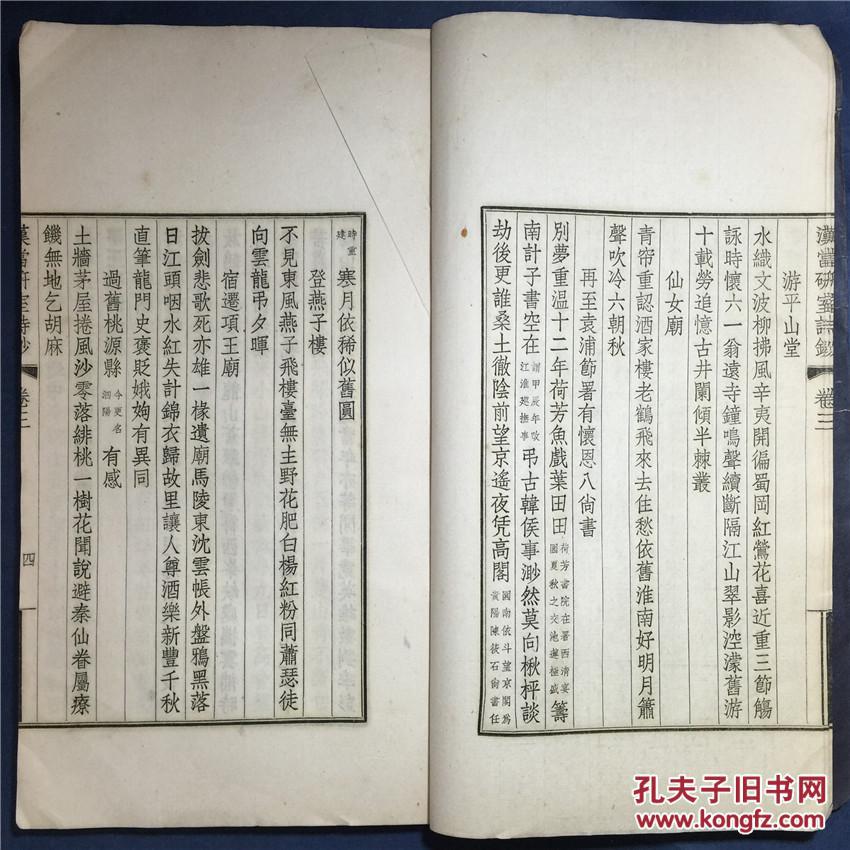 漢當研室詩鈔 卷三
游平山堂
水織文波柳拂風辛夷開徧蜀岡紅鶯花喜近重三節觴
詠時懷六一翁遠寺鐘鳴聲續斷隔江山翠影涳濛舊游
十載勞追憶古井闌傾半棘叢
仙女廟
青帘重認酒家樓老鶴飛來去住愁依舊淮南好明月簫
聲吹冷六朝秋
再至袁浦節署有懷恩八尚書
別夢重溫十二年荷芳魚戲葉田田荷芳書院在署西清宴園夏秋之交池蓮極盛籌
南計子書空在謂甲辰年改江淮建撫事弔古韓侯事渺然莫向楸枰談
劫後更誰桑土徹陰前望京遙夜凭高閣園南依斗望京閣為貴陽陳筱石尚書任
時重建寒月依稀似舊圓
登燕子樓
不見東風燕子飛樓臺無主野花肥白楊紅粉同蕭瑟徒
向雲龍弔夕暉
宿遷項王廟
拔劍悲歌死亦雄一椽遺廟馬陵東沈雲帳外盤鴉黑落
日江頭咽水紅失計錦衣歸故里讓人尊酒樂新豐千秋
直筆龍門史褒貶娥姁有異同
過舊桃源縣今更名泗陽有感
土牆茅屋捲風沙零落緋桃一樹花聞說避秦仙眷屬療
饑無地乞胡麻
漢當研室詩鈔 卷三 四
孔夫子旧书网
www.kongfz.com